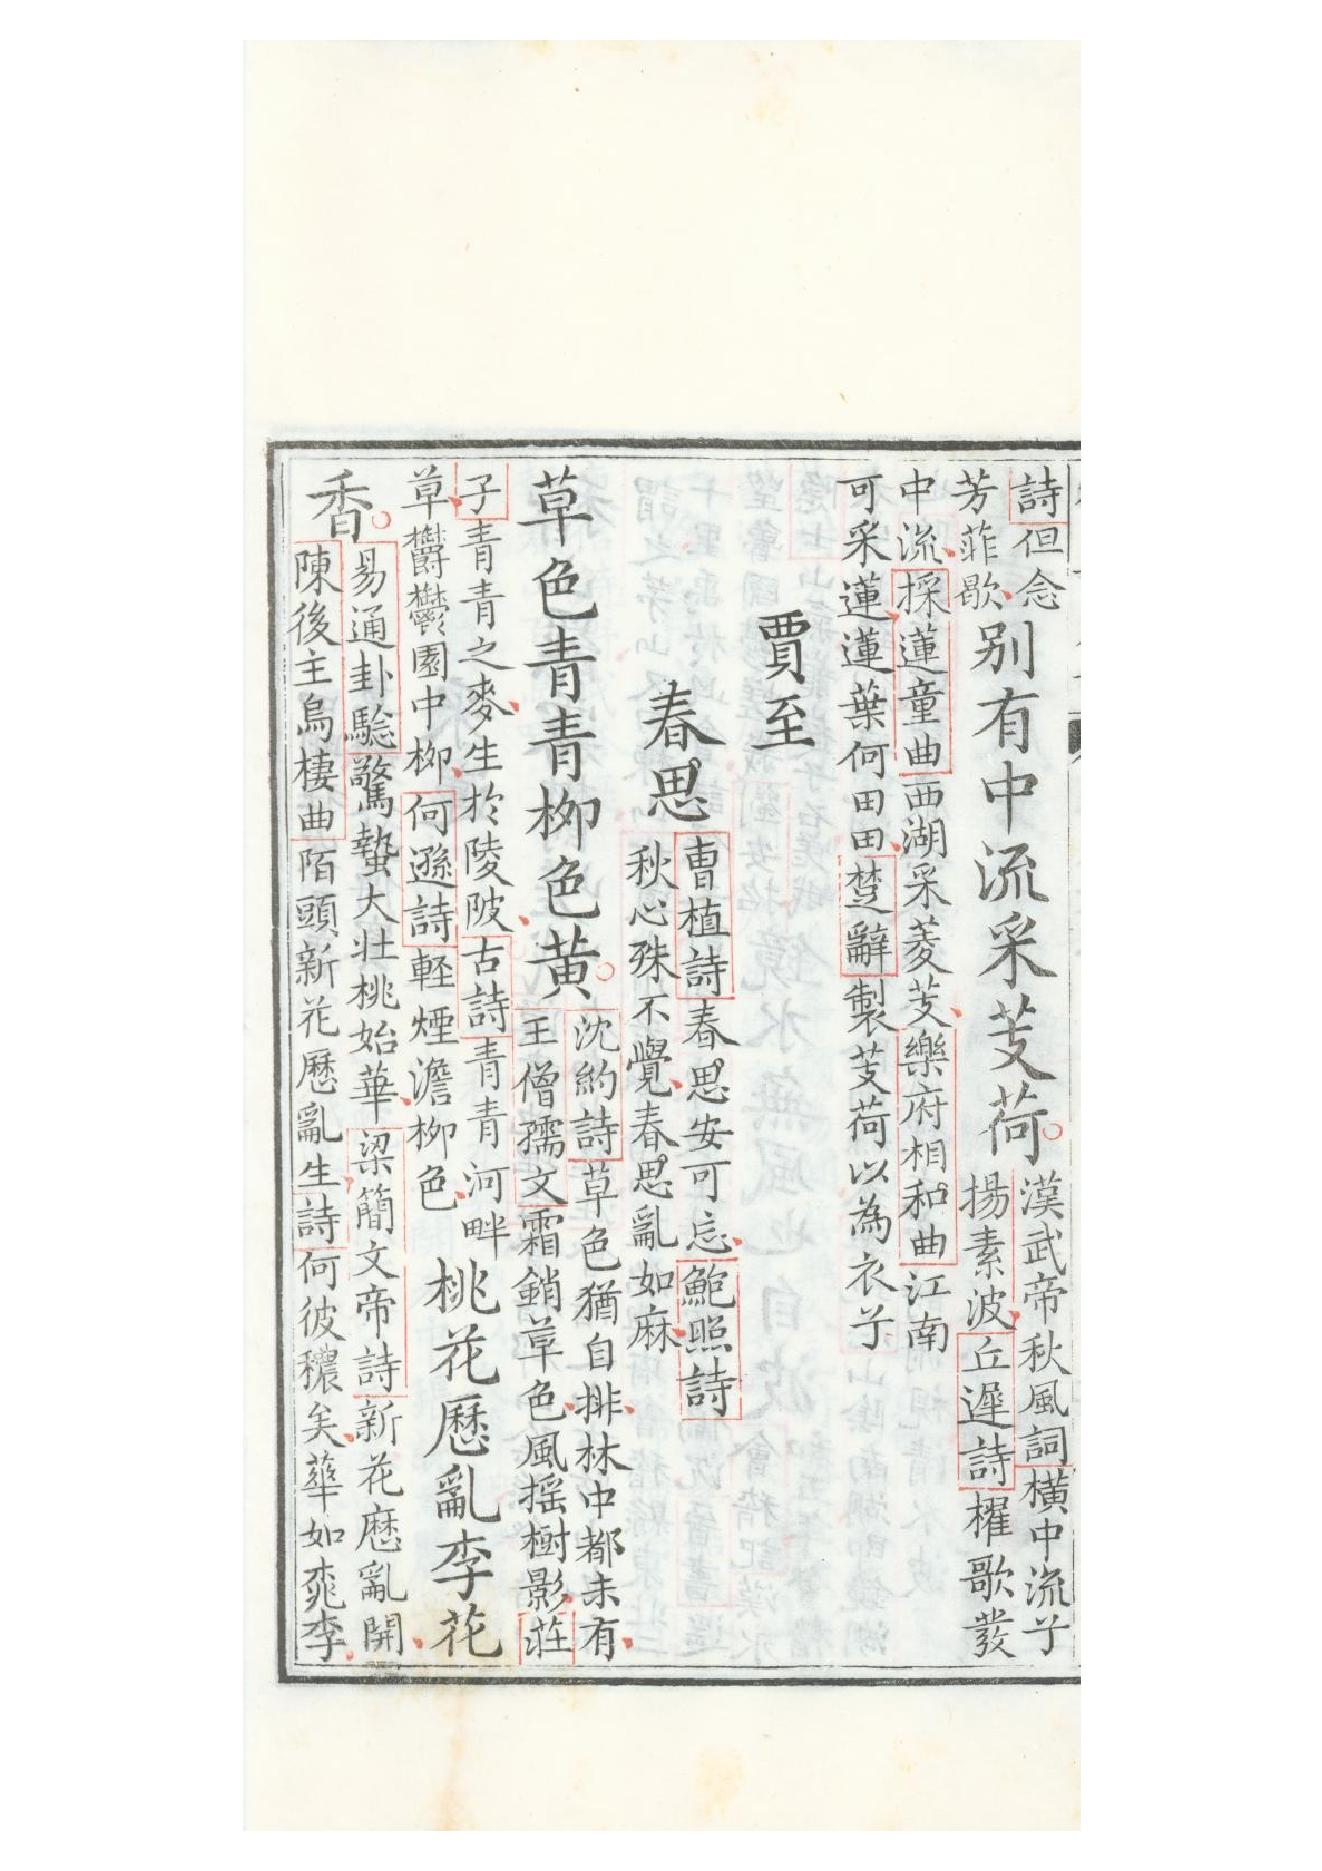 詩但念
芳菲歇别有中流采芰荷漢武帝秋風詞横中流兮
揚素波丘遲詩櫂歌發
中流採蓮童曲西湖采菱芰樂府相和曲江南
可采蓮蓮葉何田田楚辭製芰荷以為衣兮
賈至
春思曹植詩春思安可忘鮑照詩
秋心殊不覺春思亂如麻
草色青青柳色黄沈約詩草色猶自排林中都未有
王僧孺文霜銷草色風摇樹影莊
子青青之麥生於陵陂古詩青青河畔
草欝欝園中柳何遜詩輕煙澹柳色桃花歷亂李花
香易通卦驗驚蟄大壯桃始華梁簡文帝詩新花歷亂開
陳後主烏棲曲陌頭新花歷亂生詩何彼穠矣華如桃李